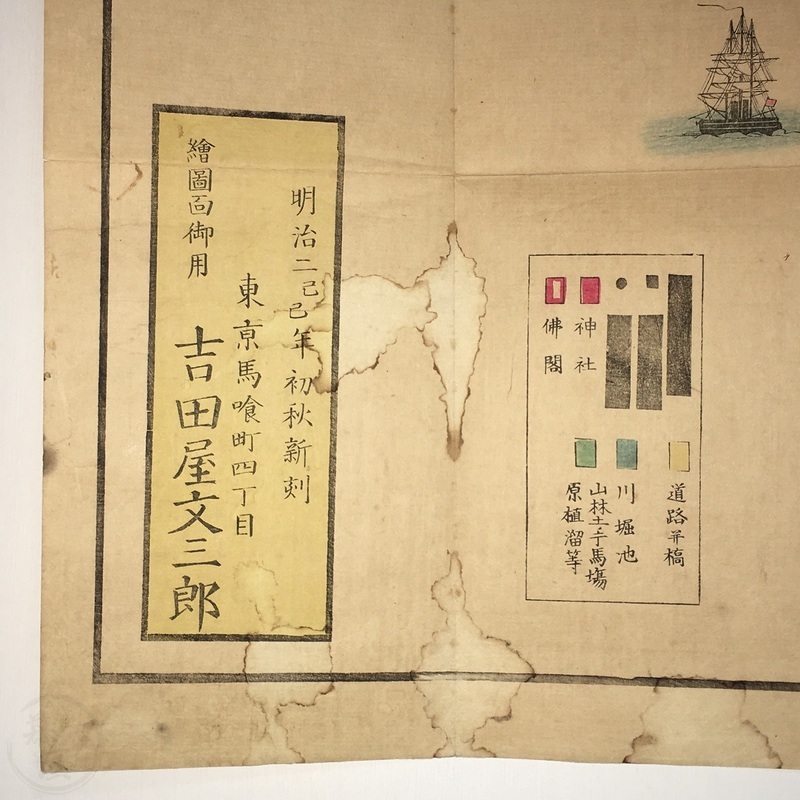 道路并橋
川堀池
山林土手馬塲
原植溜等
神社
佛閣
明治二己巳年初秋新刻
東亰馬喰町四丁目
繪圖面御用
吉田屋文三郎